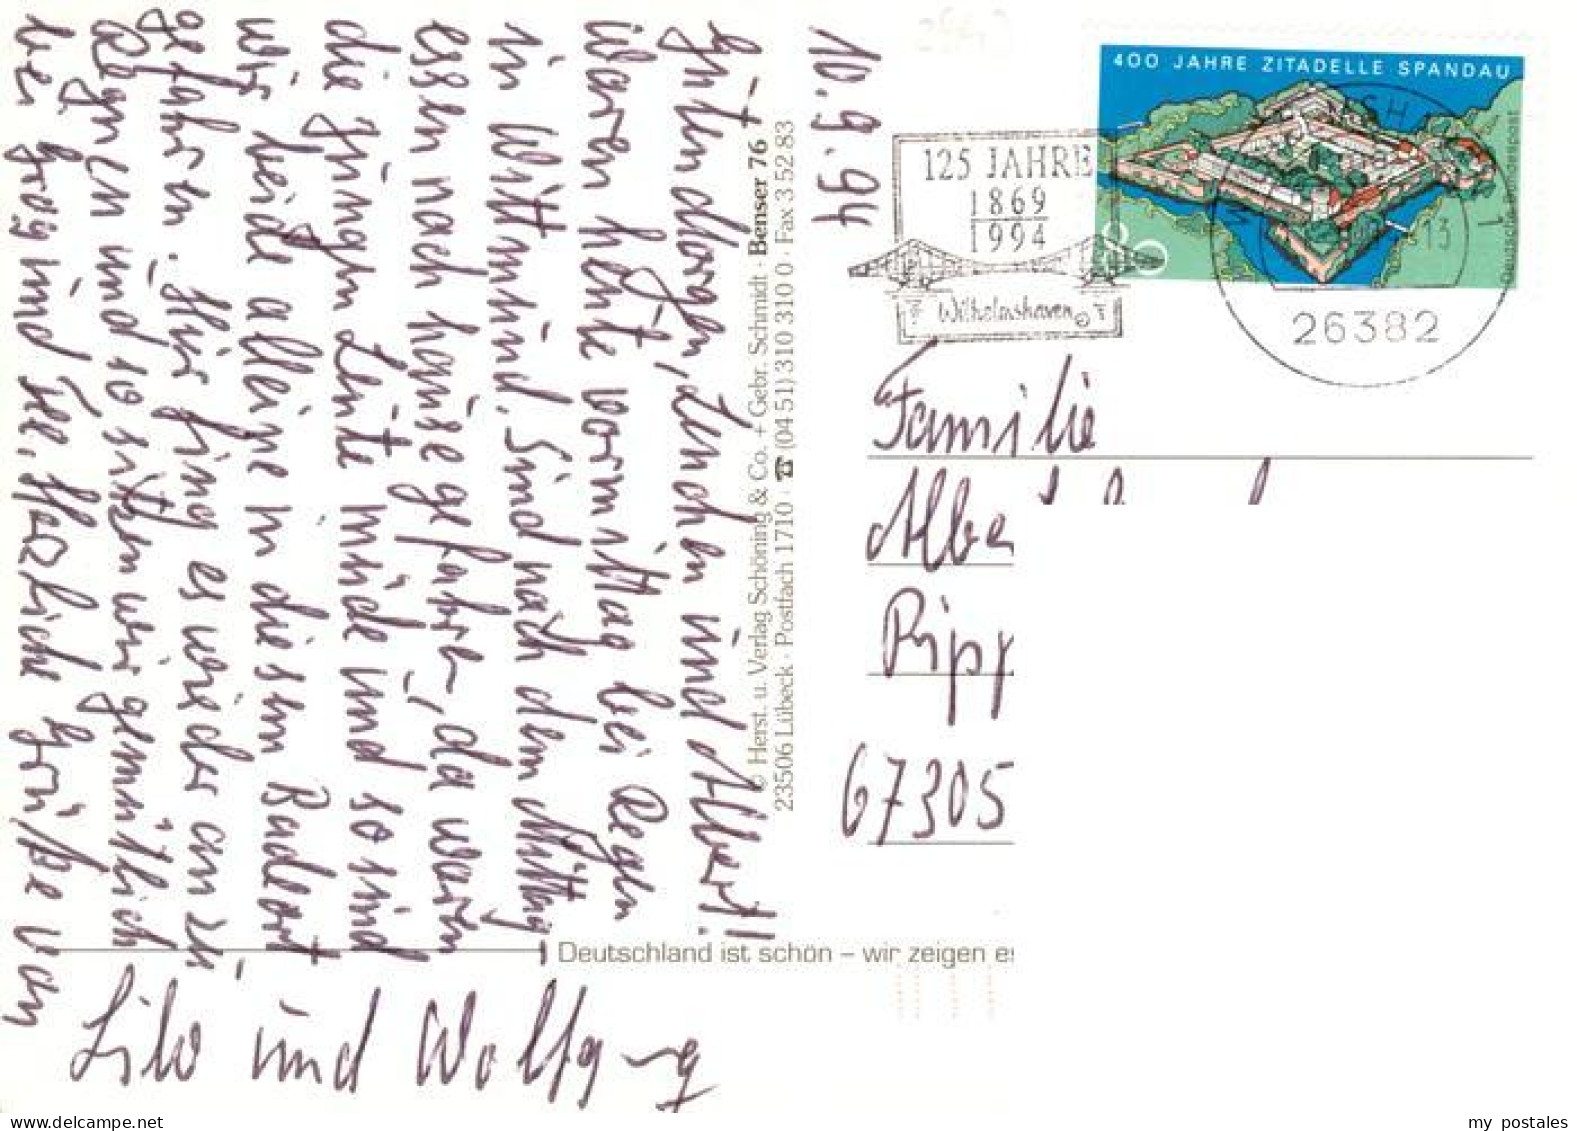 10.9.94
Guten Morgen, Lenchen und Albert!
Waren heute vormittag bei Regen
in Wittmund. Sind nach dem Mittag
essen nach hause gefahren, da waren
die jungen Leute müde und so sind
wir beide alleine in diesem Badeort
gefahren. Hier fing es wieder an zu
Regnen und so sitzen wir gemütlich
bei Grog und Tee. Herzliche Grüße von
Lilo und Wolfgang
© Herst. u. Verlag Schöning & Co. + Gebr. Schmidt · Benser 76
23506 Lübeck · Postfach 1710 · ☎ (04 51) 310 310 0 · Fax 3 52 83
Deutschland ist schön – wir zeigen es
400 JAHRE ZITADELLE SPANDAU
Deutsche Bundespost
80
125 JAHRE
1869
1994
Wilhelmshaven
13
26382
Familie
Albe
Ripp
67305
my postales